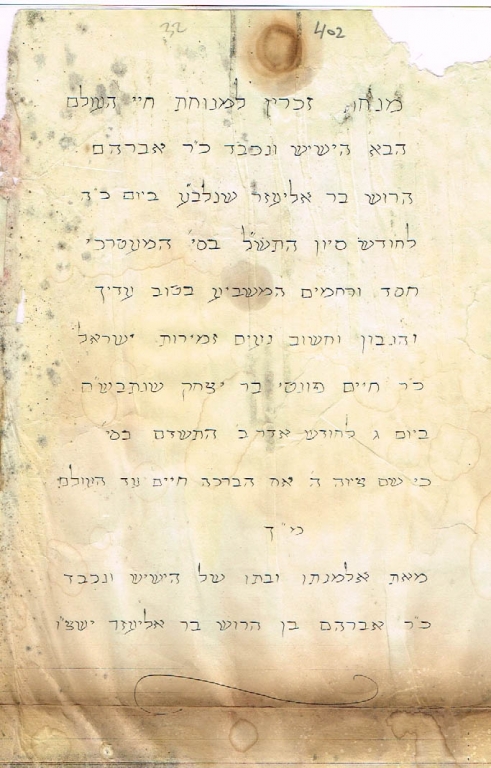 32 402
מנחת זכרון למנוחת חיי העולם
הבא הישיש ונכבד כ"ר אברהם
הרוש בר אליעזר שנלב"ע ביום כ"ה
לחודש סיון התש"ל בסי' המעטרכי
חסד ורחמים המשביע בטוב עדיך
והנבון וחשוב נעים זמירות ישראל
כ"ר חיים בר יצחק שנתבש"מ
ביום ג לחודש אדר ב התשדם בסי'
כי שם ציוה ה' את הברכה חיים עד העולם
כי"ר
מאת אלמנתו ובתו של הישיש ונכבד
כ"ר אברהם בן הרוש בר אליעזר ישצ"ו